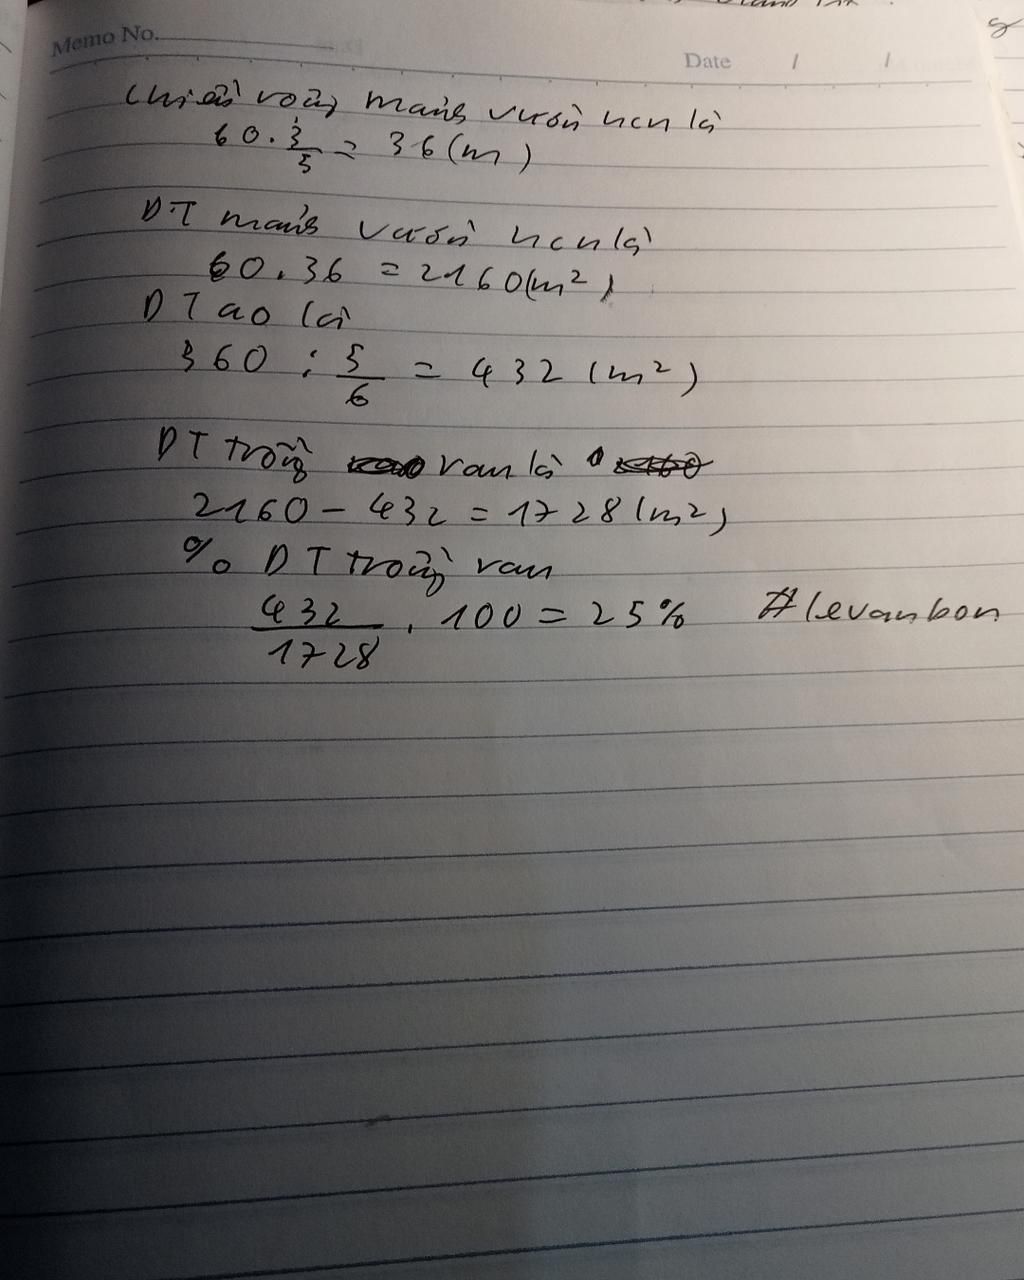 Memo No.
Date / /
Chiều rộng mảnh vườn hcn là
60 . 3/5 = 36 (m)
DT mảnh vườn hcn là
60 . 36 = 2160 (m²)
DT ao là
360 : 5/6 = 432 (m²)
DT trồng rau là
2160 - 432 = 1728 (m²)
% DT trồng rau
432/1728 . 100 = 25%
#levanbon